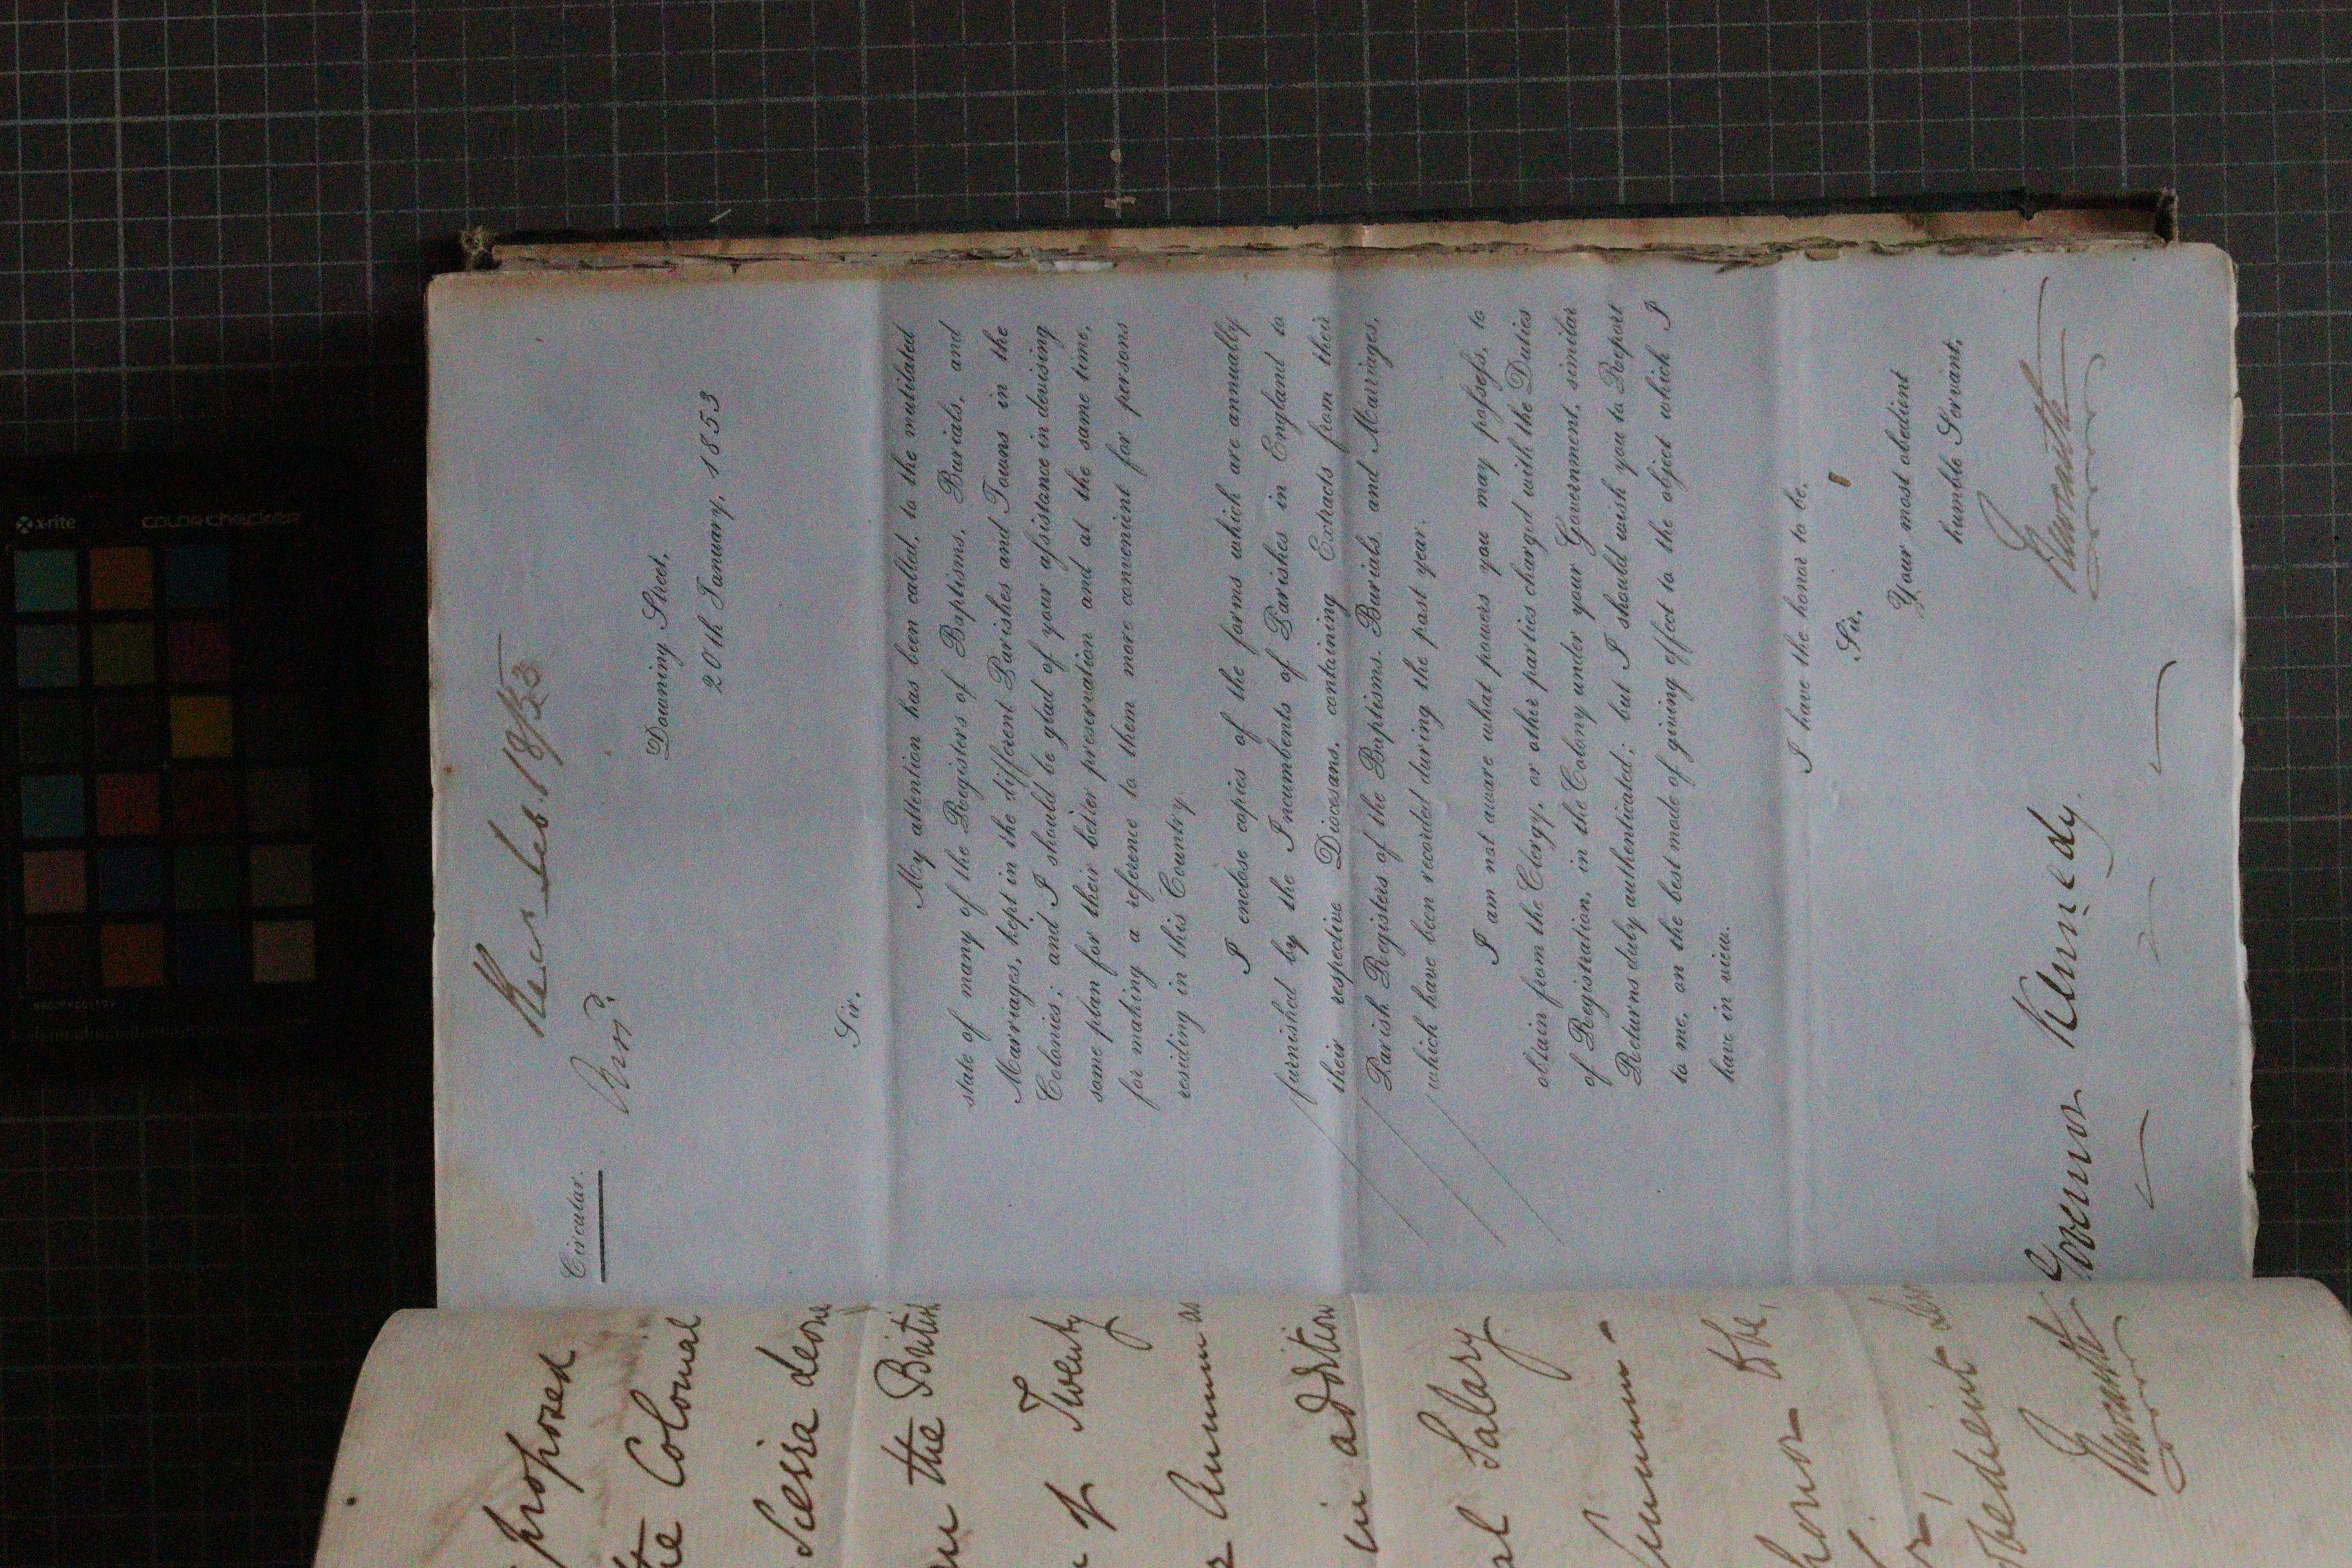 Circular.
Recd Feb. 18/53
Downing Street,
20th January, 1853
Sir,
My attention has been called, to the mutilated
state of many of the Registers of Baptisms, Burials, and
Marriages, kept in the different Parishes and Towns in the
Colonies; and I should be glad of your assistance in devising
some plan for their better preservation and at the same time,
for making a reference to them more convenient for persons
residing in this Country.
I enclose copies of the forms which are annually
furnished by the Incumbents of Parishes in England to
their respective Diocesans, containing Extracts from their
Parish Registers of the Baptisms, Burials, and Marriages,
which have been recorded during the past year.
I am not aware what powers you may possess, to
obtain from the Clergy, or other parties charged with the Duties
of Registration, in the Colony under your Government, similar
Returns duly authenticated; but I should wish you to Report
to me, on the best mode of giving effect to the object which I
have in view.
I have the honor to be,
Sir,
Your most obedient
humble Servant,
Newcastle
Governor Kennedy.
proposed
the Colonial
Sierra Leone
the British
of Twenty
Annum
in addition
Salary
Annum -
honor to be,
obedient
Newcastle
x-rite
colorchecker